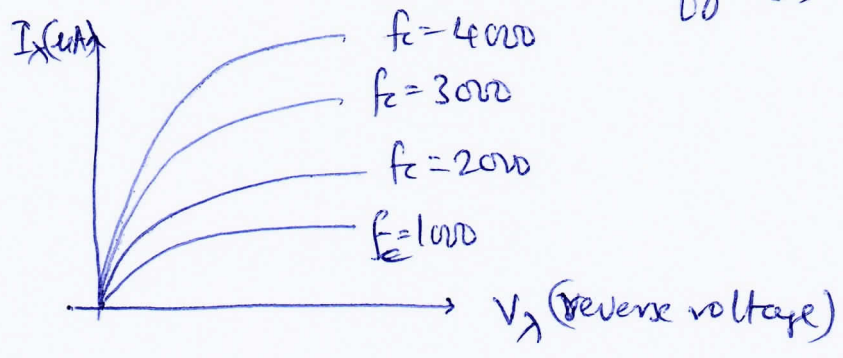 I_λ(μA)
fc=4000
fc=3000
fc=2000
fc=1000
V_λ (reverse voltage)